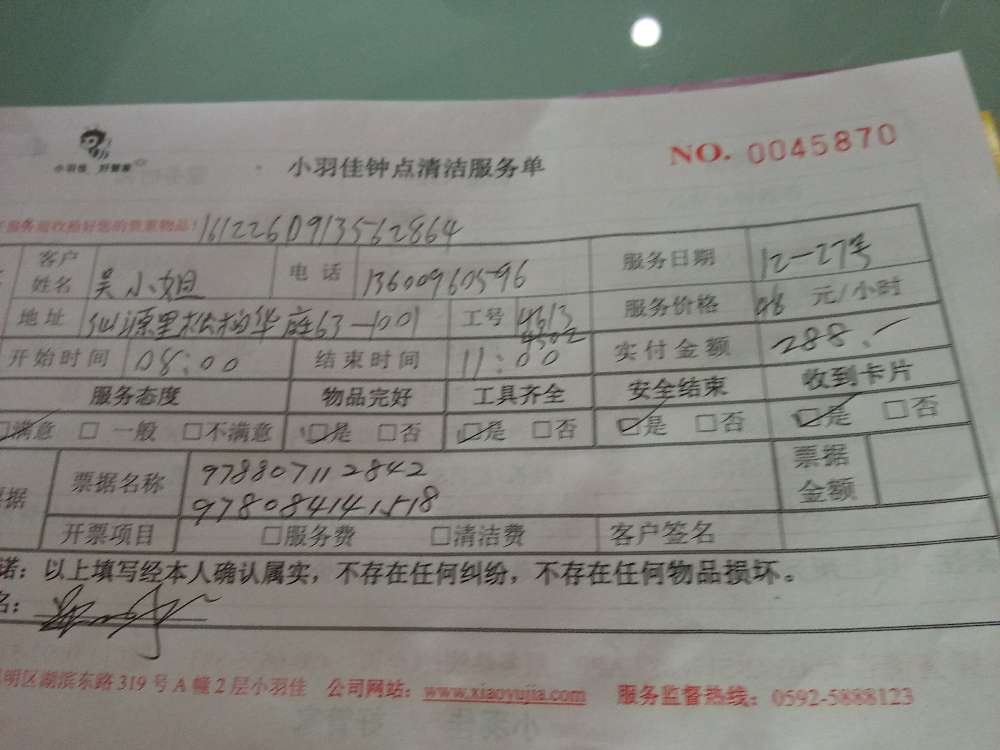 小羽佳 好管家
小羽佳钟点清洁服务单
NO. 0045870
服务前收拾好您的贵重物品! 161226D913562864
客户姓名 吴小姐 电话 13600960596 服务日期 12-27号
地址 仙源里松柏华庭63-1001 工号 4613 4302 服务价格 元/小时
开始时间 08:00 结束时间 11:00 实付金额 288.-
服务态度 物品完好 工具齐全 安全结束 收到卡片
☑满意 □一般 □不满意 ☑是 □否 ☑是 □否 ☑是 □否 ☑是 □否
票据名称 978807112842 票据金额
978084141518
开票项目 □服务费 □清洁费 客户签名
诺：以上填写经本人确认属实，不存在任何纠纷，不存在任何物品损坏。
名：
明区湖滨东路319号A幢2层小羽佳 公司网站：www.xiaoyujia.com 服务监督热线：0592-5888123